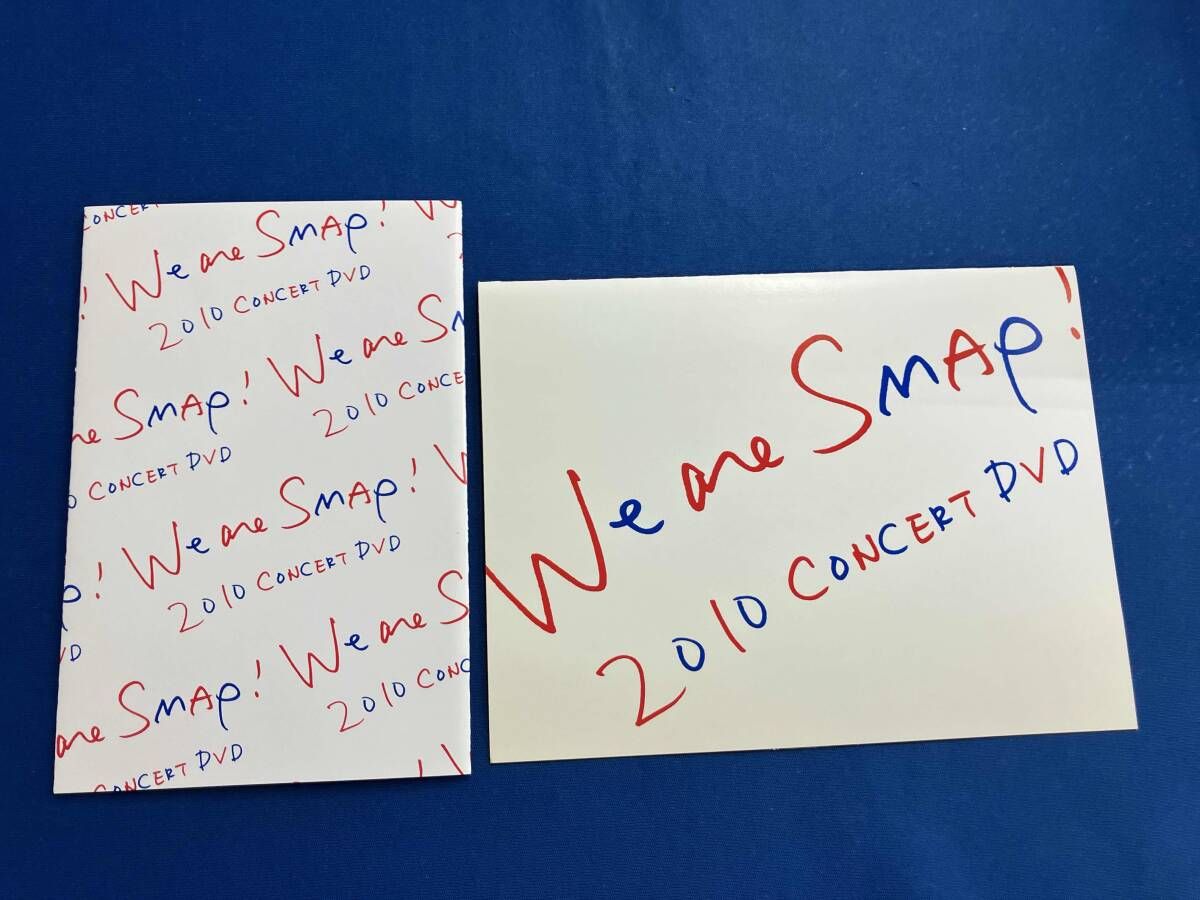 CONCERT
We are SMAP!
2010 CONCERT DVD
SMAP! We are
2010 CONCE
CONCERT DVD
We are SMAP!
2010 CONCERT DVD
are SMAP! We are
2010 CONC
CONCERT DVD
We are SMAP!
2010 CONCERT DVD